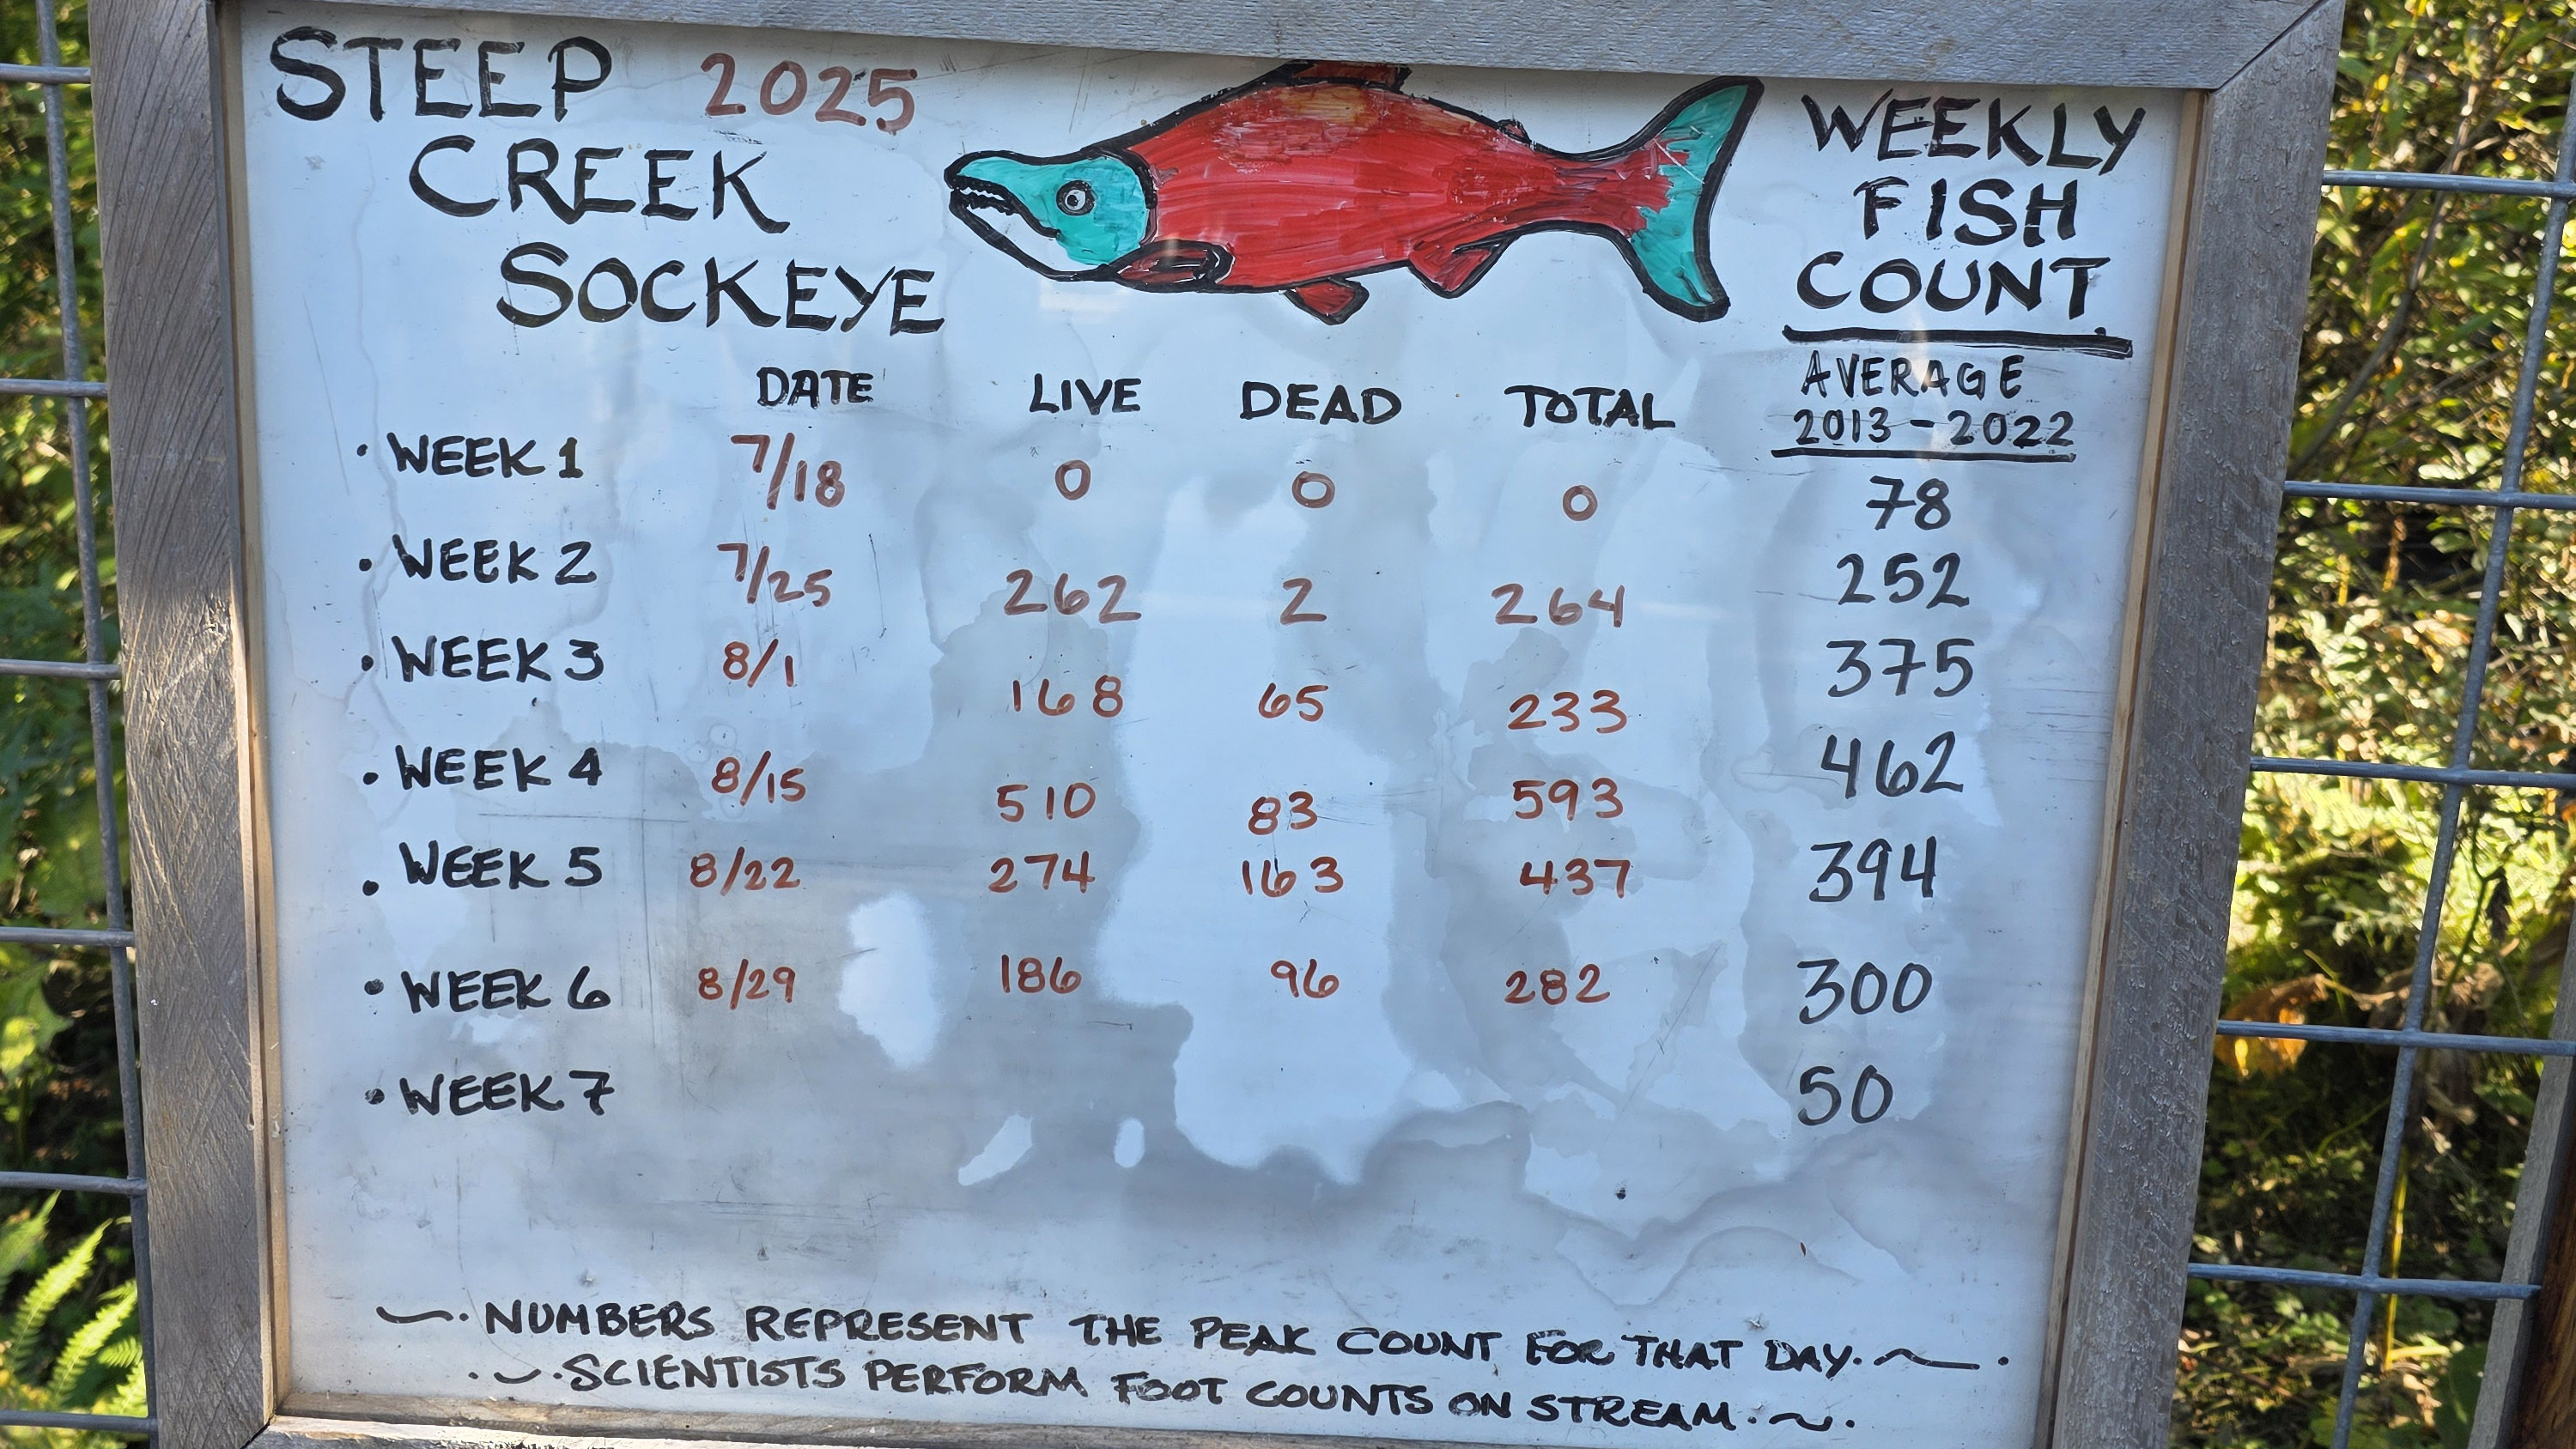 STEEP 2025
CREEK
SOCKEYE
WEEKLY
FISH
COUNT
DATE LIVE DEAD TOTAL AVERAGE
2013-2022
• WEEK 1 7/18 0 0 0 78
• WEEK 2 7/25 262 2 264 252
• WEEK 3 8/1 168 65 233 375
• WEEK 4 8/15 510 83 593 462
• WEEK 5 8/22 274 163 437 394
• WEEK 6 8/29 186 96 282 300
• WEEK 7 50
~• NUMBERS REPRESENT THE PEAK COUNT FOR THAT DAY. ~•
•~• SCIENTISTS PERFORM FOOT COUNTS ON STREAM •~•